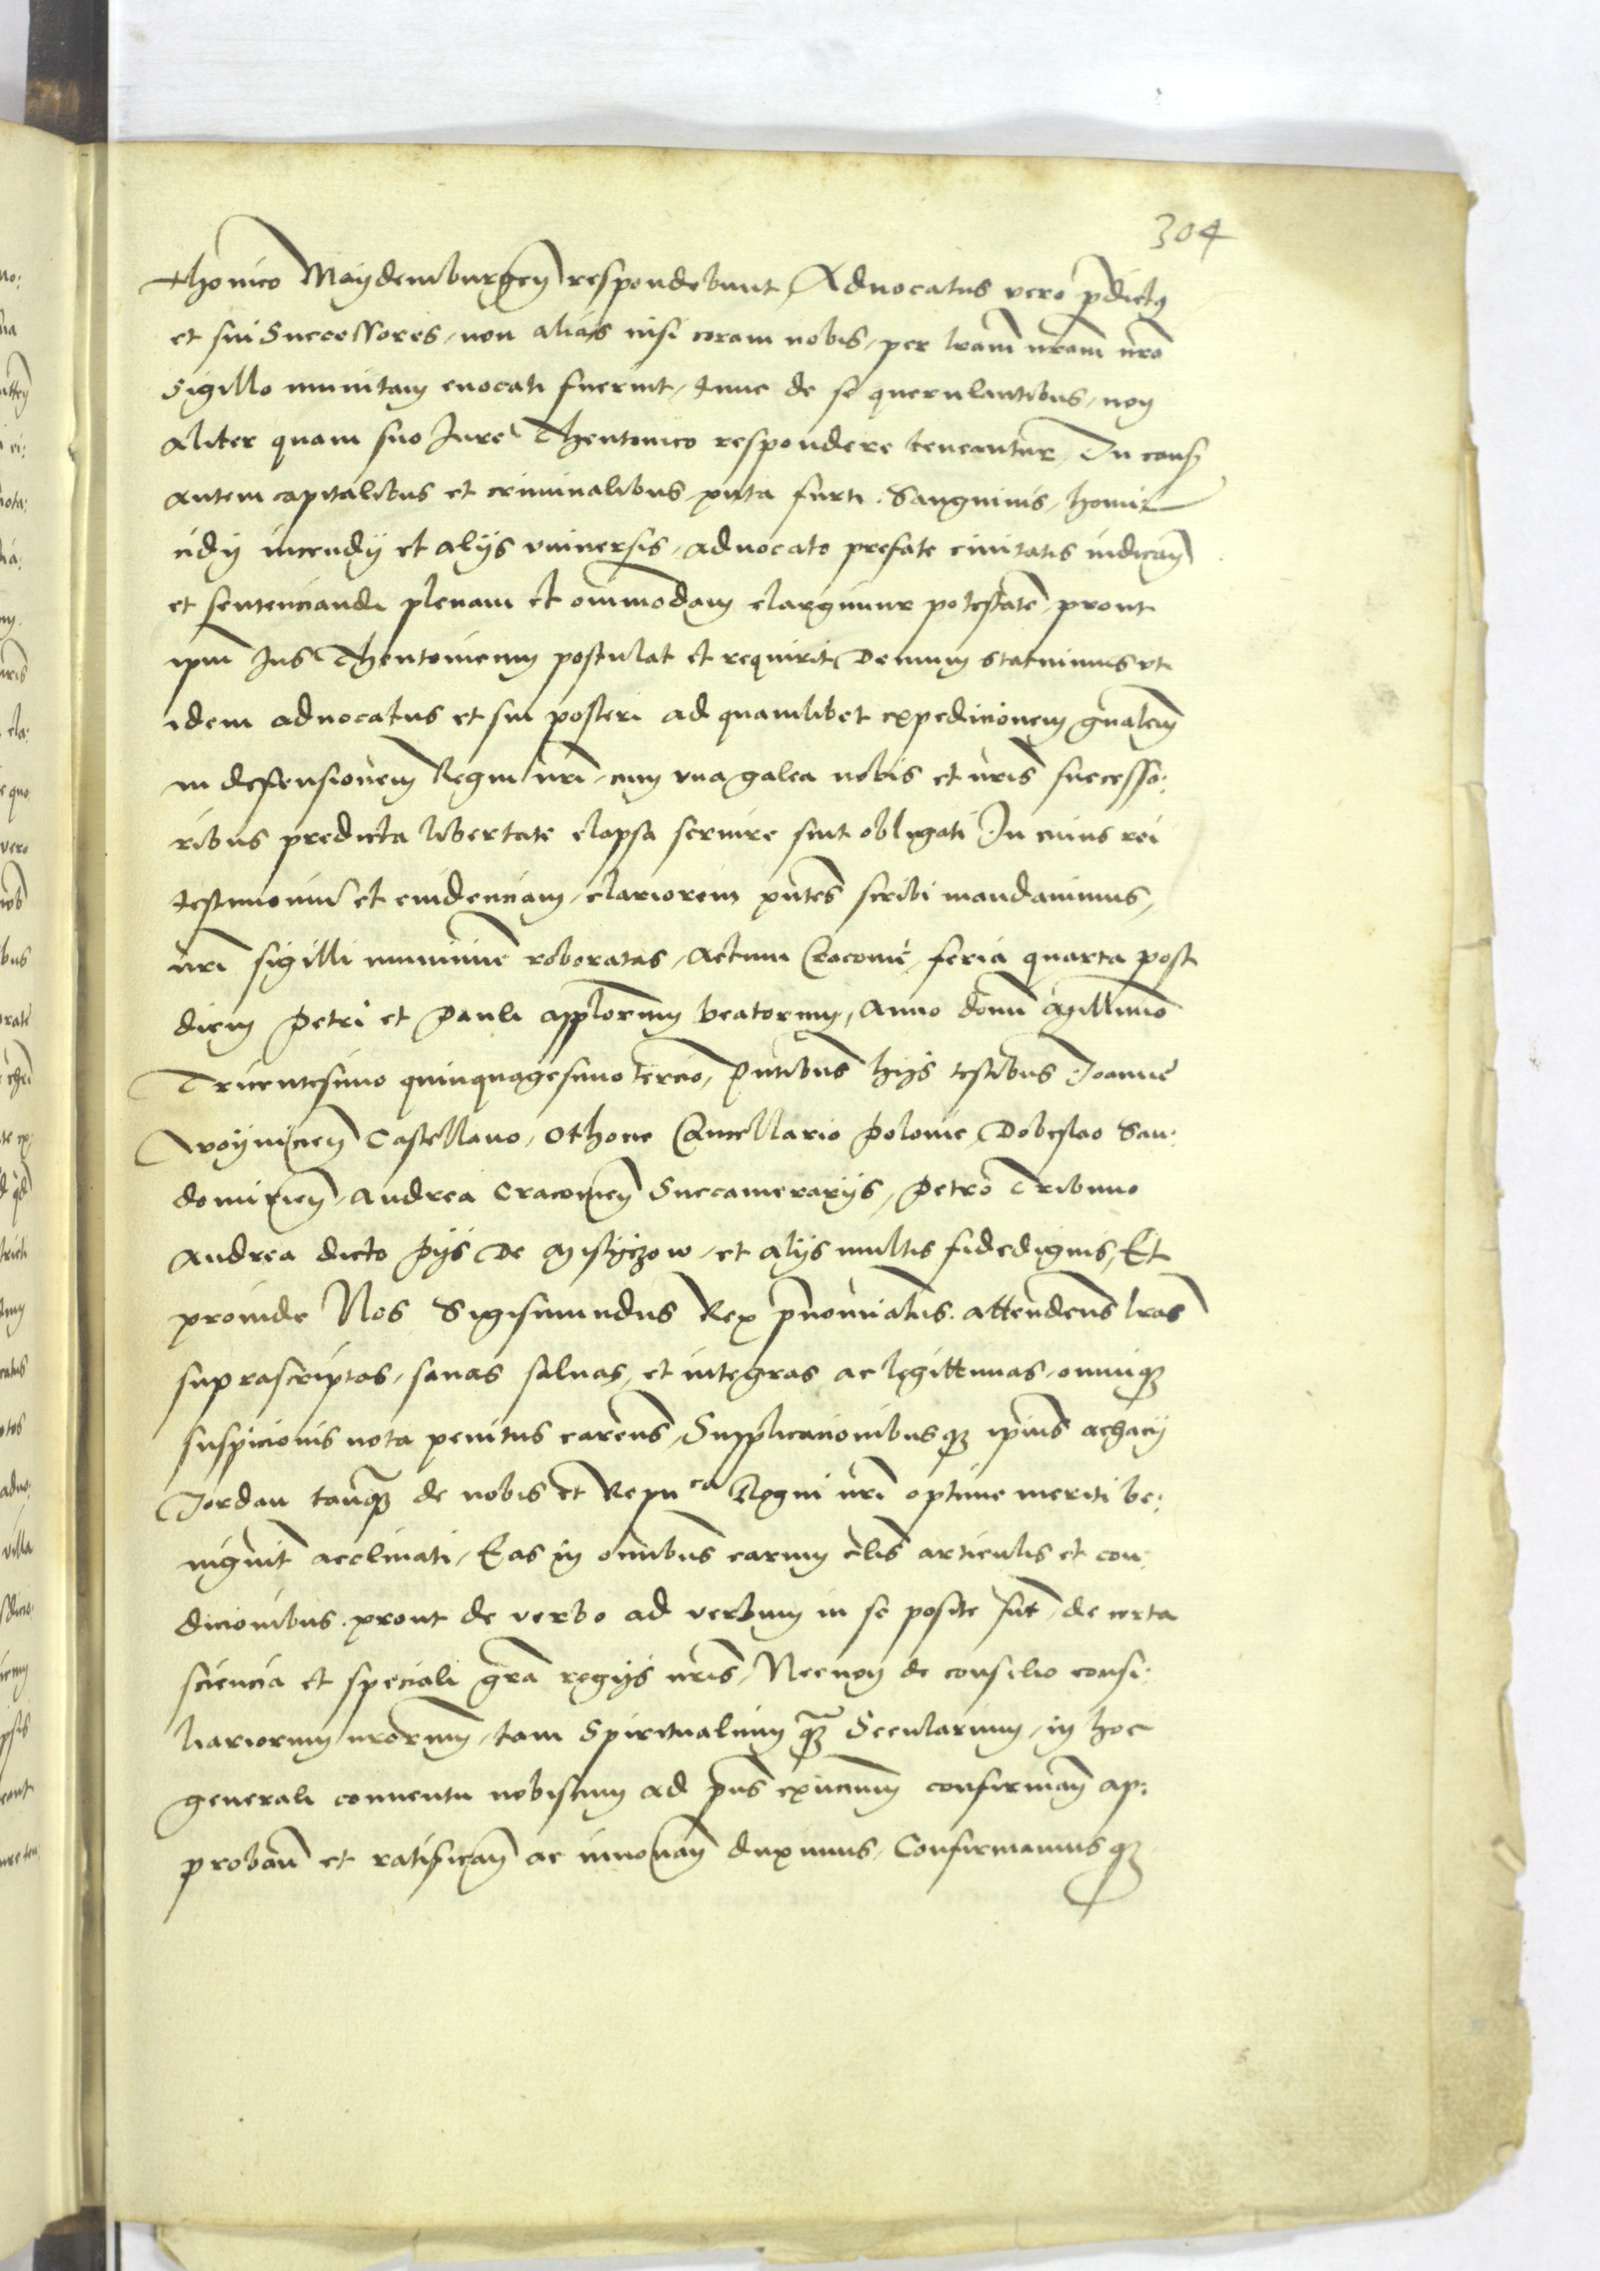 304
thonico Maydemburgeñ respondebunt, Aduocatus vero p̄dictꝯ
et sui Successores, non alias nisi coram nobis, per lrām nrām nrō
sigillo munitam euocati fuerint, tunc de se querulantibus, non
aliter quam suo Jure Theutonico respondere teneantur, In caus̄
autem capitalibus et criminalibus, puta furti, Sanguinis, homi-
cidij incendij et alijs vniuersis, aduocato prefate ciuitatis iudicañ
et sentenciandi plenam et omnimodam elargimur potestatē, prout
ipm̄ Jus Theutonicum postulat et requirit Demum statuimus vt
idem aduocatus et sui posteri ad quamlibet expedicionem gn̄alem
in defensionem Regni nrī, cum vna galea nobis et nrīs successo:
ribus predicta libertate elapsa seruire sint obligati In cuius rei
testimoniū et euidenciam, clariorem pn̄tes scribi mandauimus,
nrī sigilli munimine roboratas, Actum Cracouie, feria quarta post
diem Petri et Pauli appl̄orum beatorum, Anno domī Millimo
Tricentesimo quinquagesimo tercio, Pn̄tibus hijs testibus Joanne
Woyniciēn Castellano, Othone Cancellario Polonie, Dobeslao San:
domirieñ, Andrea Cracouieñ Succamerarijs, Petro Tribuno
Andrea dicto Pijs De et alijs multis fidedignis, Et
proinde Nos Sigismundus Rex pn̄ominatus. attendens lrās
suprascriptas, sanas saluas, et integras ac legittimas, omniqꝫ
suspicionis nota penitus carens, Supplicacionibusqꝫ ipius achacij
Jordan tanqꝫ de nobis et Repuca Regni nrī optime meriti be:
nignit acclinati, Eas in omībus earum cl̄is articulis et con:
dicionibus prout de verbo ad verbum in se posite sunt, de certa
sciencia et speciali grā regijs nrīs, Necnon de consilio consi:
liariorum nrōrum, tam Spiritualium qꝫ Secularium, in hoc
generali conuentu nobiscum ad pn̄s exn̄cium confirmañ ap:
probañ et ratificañ ac innouañ duximus, Confirmamusqꝫ